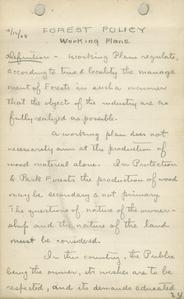 9/15/08
FOREST POLICY
Working Plans
Definition - Working Plans regulate,
according to time & locality the manage
ment of Forests in such a manner
that the object of the industry are as
fully realized as possible.
A working plan does not
necessarily aim at the production of
wood material alone. In Protection
& Park Forests the production of wood
may be secondary & not primary.
The questions of nature of the owner-
ship and the nature of the land
must be considered.
In this country, the Public
being the owner, its wishes are to be
respected, and its demands educated